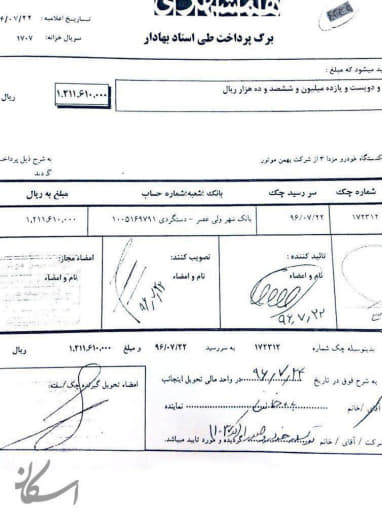 همشهری
تاریخ اعلامیه : ۹۶/۰۷/۲۲
برگ پرداخت طی اسناد بهادار
سریال خزانه: ۱۷۰۷
ید میشود که مبلغ :
و دویست و یازده میلیون و ششصد و ده هزار ریال
۱,۲۱۱,۶۱۰,۰۰۰ ریال
کدستگاه خودرو مزدا ۳ از شرکت بهمن موتور
به شرح ذیل پرداخت
گردید
شماره چک سر رسید چک بانک/شعبه/شماره حساب مبلغ به ریال
۱۷۲۳۱۲ ۹۶/۰۷/۲۲ بانک شهر ولی عصر - دستگردی ۱۰۰۵۱۶۹۷۱۱ ۱,۲۱۱,۶۱۰,۰۰۰
تائید کننده : تصویب کننده: امضاء مجاز:
نام و امضاء نام و امضاء نام و امضاء
۹۶,۷,۲۲
بدینوسیله چک شماره ۱۷۲۳۱۲ به سررسید ۹۶/۰۷/۲۲ و مبلغ ۱,۲۱۱,۶۱۰,۰۰۰ ریال
به شرح فوق در تاریخ ۹۶,۷,۲۴ در واحد مالی تحویل اینجانب
امضاء تحویل گیرنده چک/سفته:
/خانم نماینده
شرکت / آقای / خانم گردیده و مورد تایید میباشد.
اسکانیوز